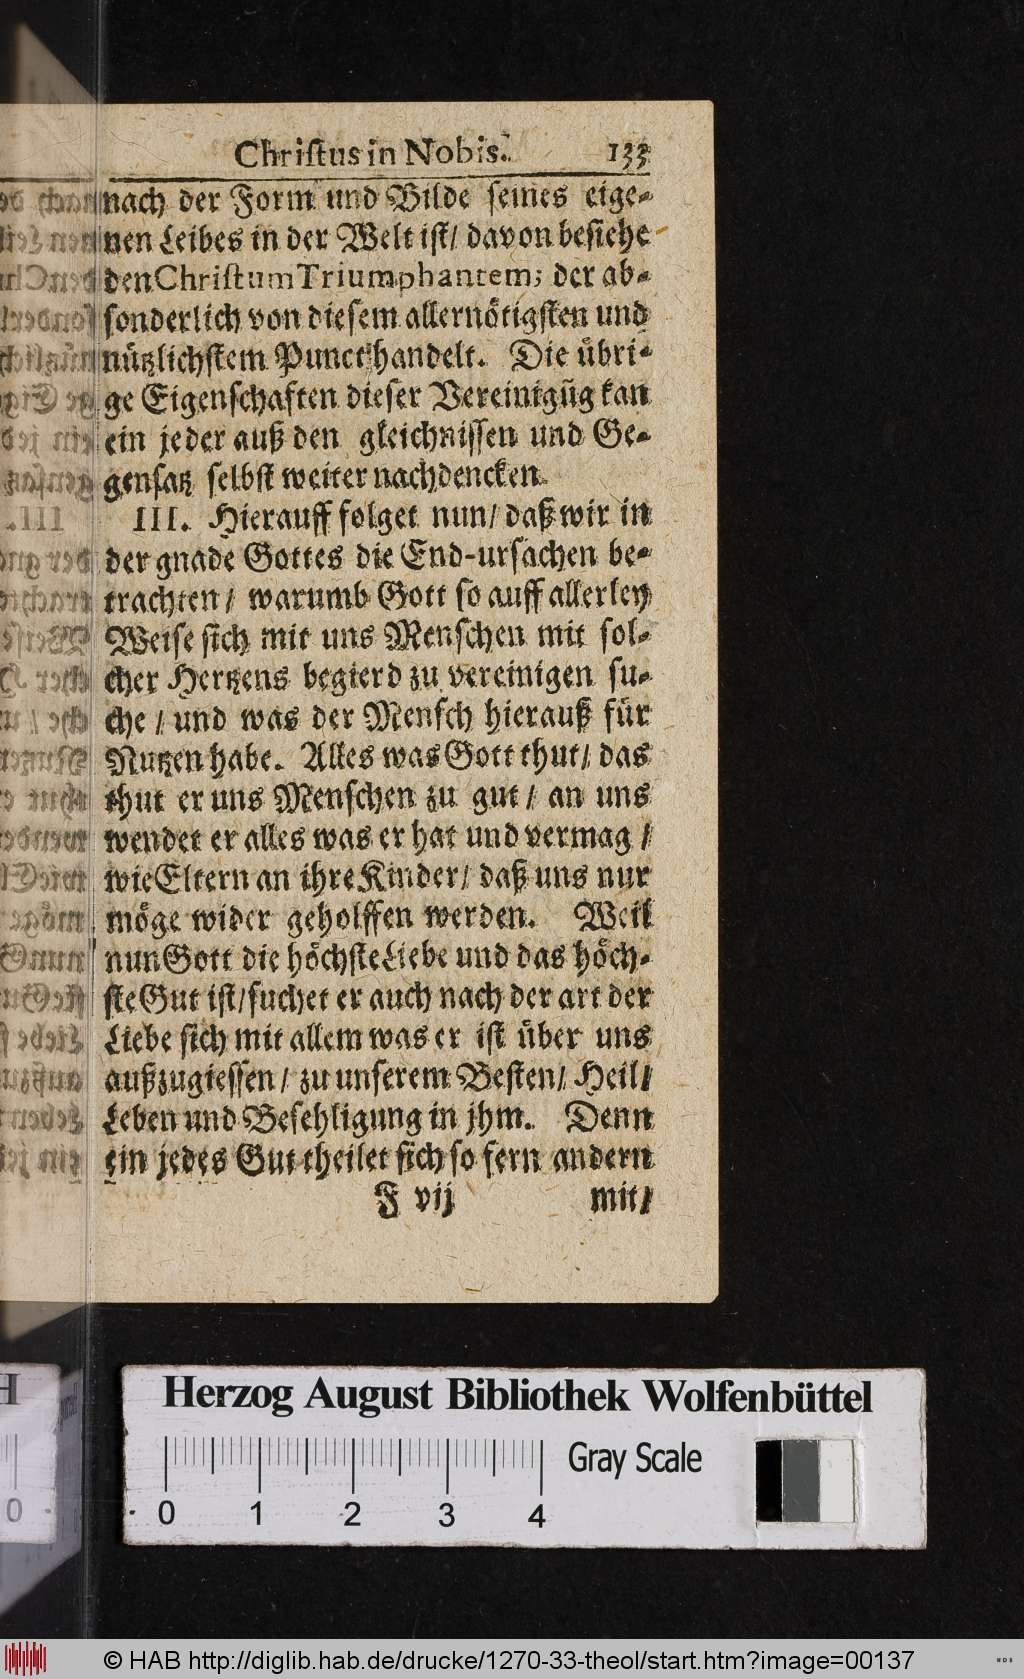 Christus in Nobis. 133
nach der Form und Bilde seines eige-
nen Leibes in der Welt ist/ davon besiehe
den Christum Triumphantem; der ab-
sonderlich von diesem allernötigsten und
nützlichstem Punct handelt. Die übri-
ge Eigenschaften dieser Vereinigūg kan
ein jeder auß den gleichnissen und Ge-
gensatz selbst weiter nachdencken.
III. Hierauff folget nun/ daß wir in
der gnade Gottes die End-ursachen be-
trachten/ warumb Gott so auff allerley
Weise sich mit uns Menschen mit sol-
cher Hertzens begierd zu vereinigen su-
che/ und was der Mensch hierauß für
Nutzen habe. Alles was Gott thut/ das
thut er uns Menschen zu gut/ an uns
wendet er alles was er hat und vermag/
wie Eltern an ihre Kinder/ daß uns nur
möge wider geholffen werden. Weil
nun Gott die höchste Liebe und das höch-
ste Gut ist/ suchet er auch nach der art der
Liebe sich mit allem was er ist über uns
außzugiessen/ zu unserem Besten/ Heil/
Leben und Besehligung in jhm. Denn
ein jedes Gut theilet sich so fern andern
F vij mit/
Herzog August Bibliothek Wolfenbüttel
Gray Scale
0 1 2 3 4
© HAB http://diglib.hab.de/drucke/1270-33-theol/start.htm?image=00137